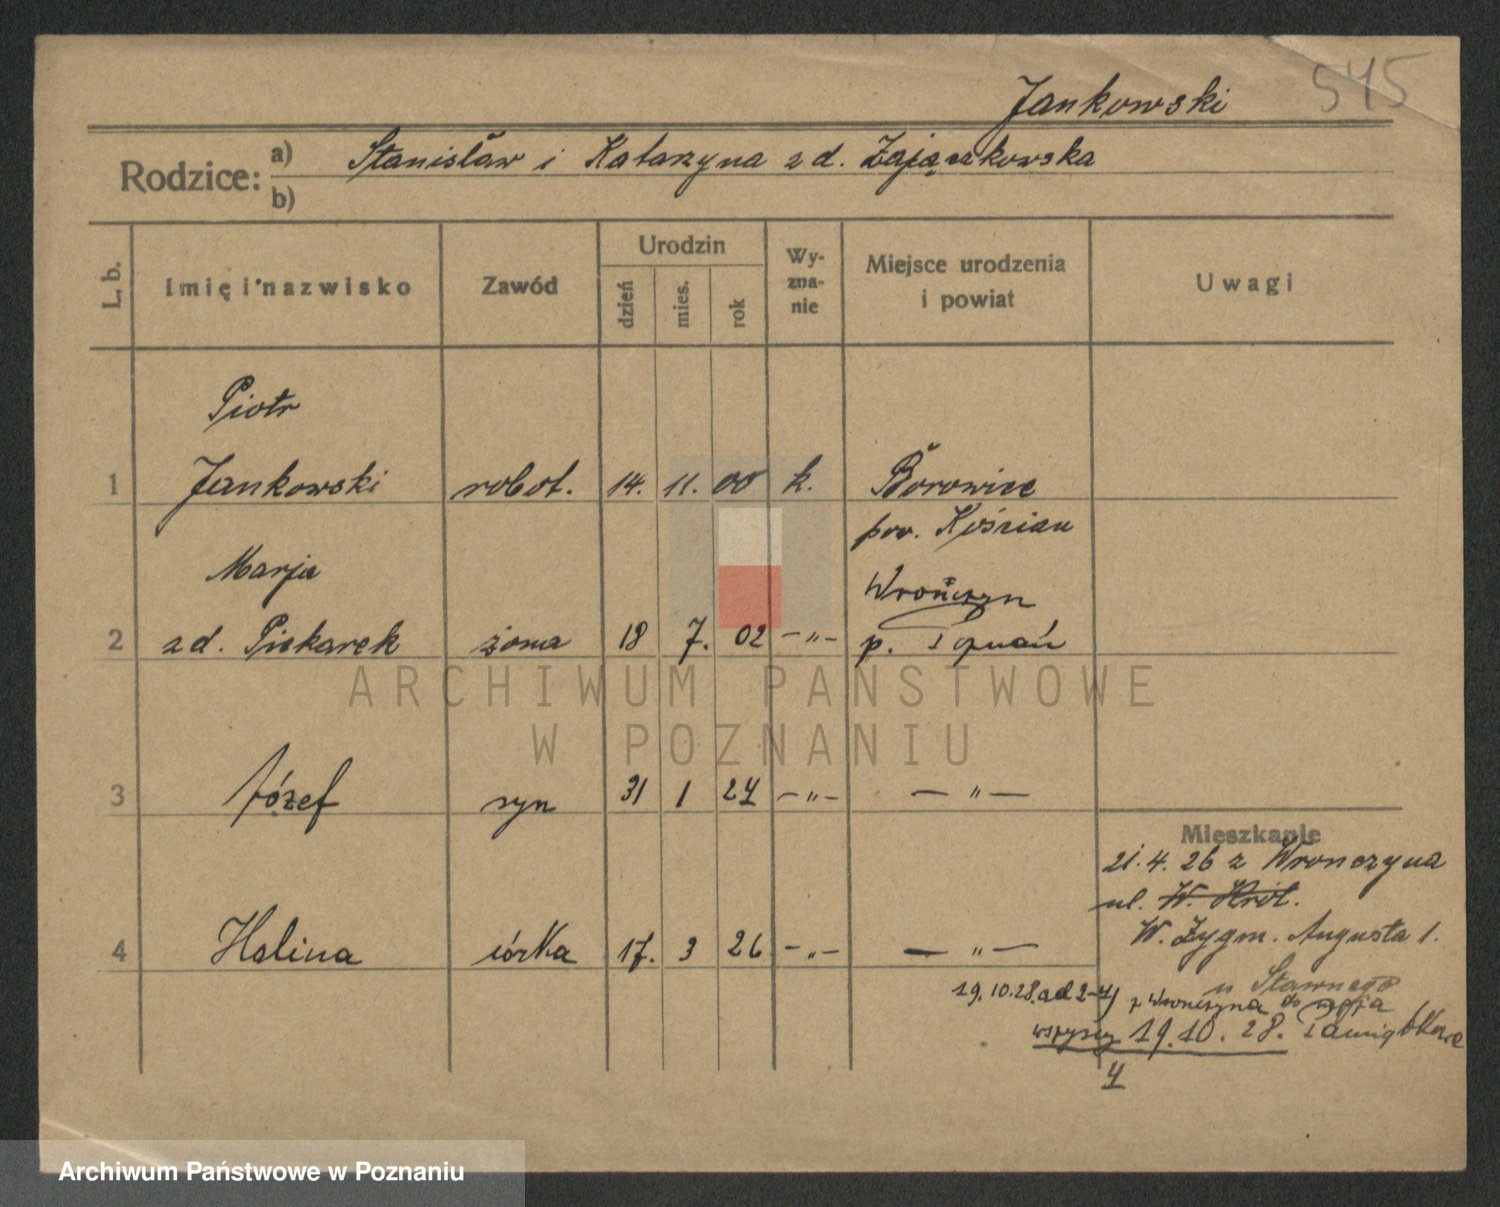 545
Jankowski
Rodzice: a) Stanisław i Katarzyna z d. Zajączkowska
b)
L. b. Imię i nazwisko Zawód Urodzin dzień mies. rok Wy-zna-nie Miejsce urodzenia i powiat Uwagi
Piotr
1 Jankowski robot. 14. 11. 00 k. Borowice
pow. Kościan
Marja Wrończyn
2 z d. Piekarek żona 18 7. 02 –„– p. Poznań
3 Józef syn 31 1 24 –„– –„–
Mieszkanie
21. 4. 26 z Wronczyna
ul. W. Król.
4 Halina córka 17. 3 26 –„– –„–
W. Zygm. Augusta 1.
u Stawnego
19.10.28. ad 2-4) z Wronczyna do
wszyscy 19.10.28. Pamiątkowe
4
ARCHIWUM PAŃSTWOWE
W POZNANIU
Archiwum Państwowe w Poznaniu